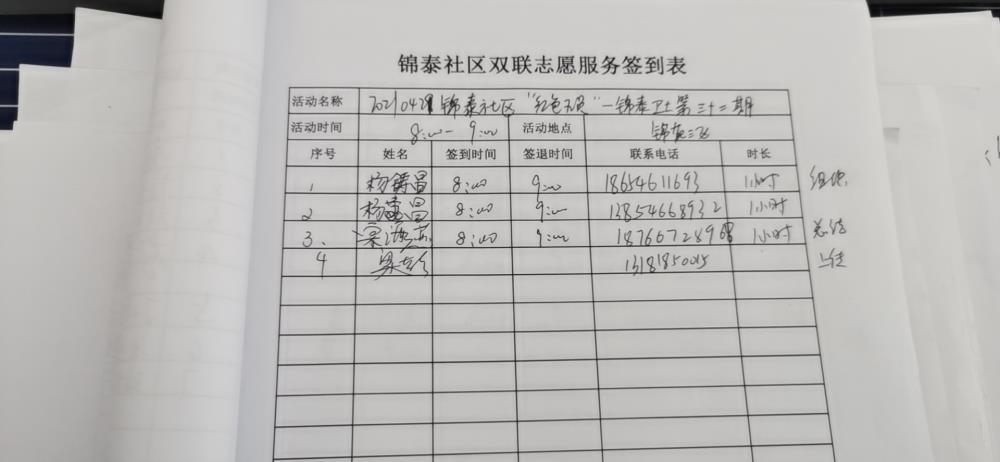 锦泰社区双联志愿服务签到表
活动名称 20210428 锦泰社区 "红色 " — 锦泰卫士第三十二期
活动时间 8:00 — 9:00 活动地点 锦泰三区
序号 姓名 签到时间 签退时间 联系电话 时长
1 杨 昌 8:00 9:00 18654611693 1小时 组织
2 杨 昌 8:00 9:00 13854668932 1小时
3. 8:00 9:00 18766728968 1小时 总结
4 梁 13181850015 上传